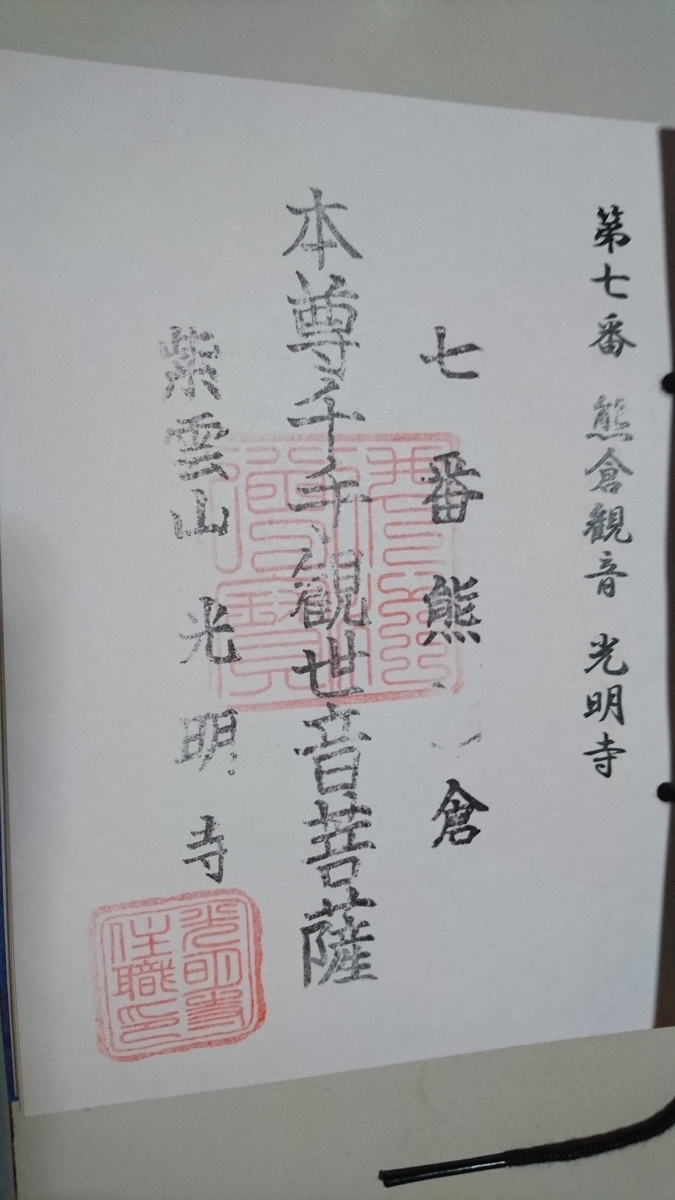 第七番 熊倉観音 光明寺
七番熊倉
本尊千手観世音菩薩
紫雲山 光明寺
光明寺
住職印